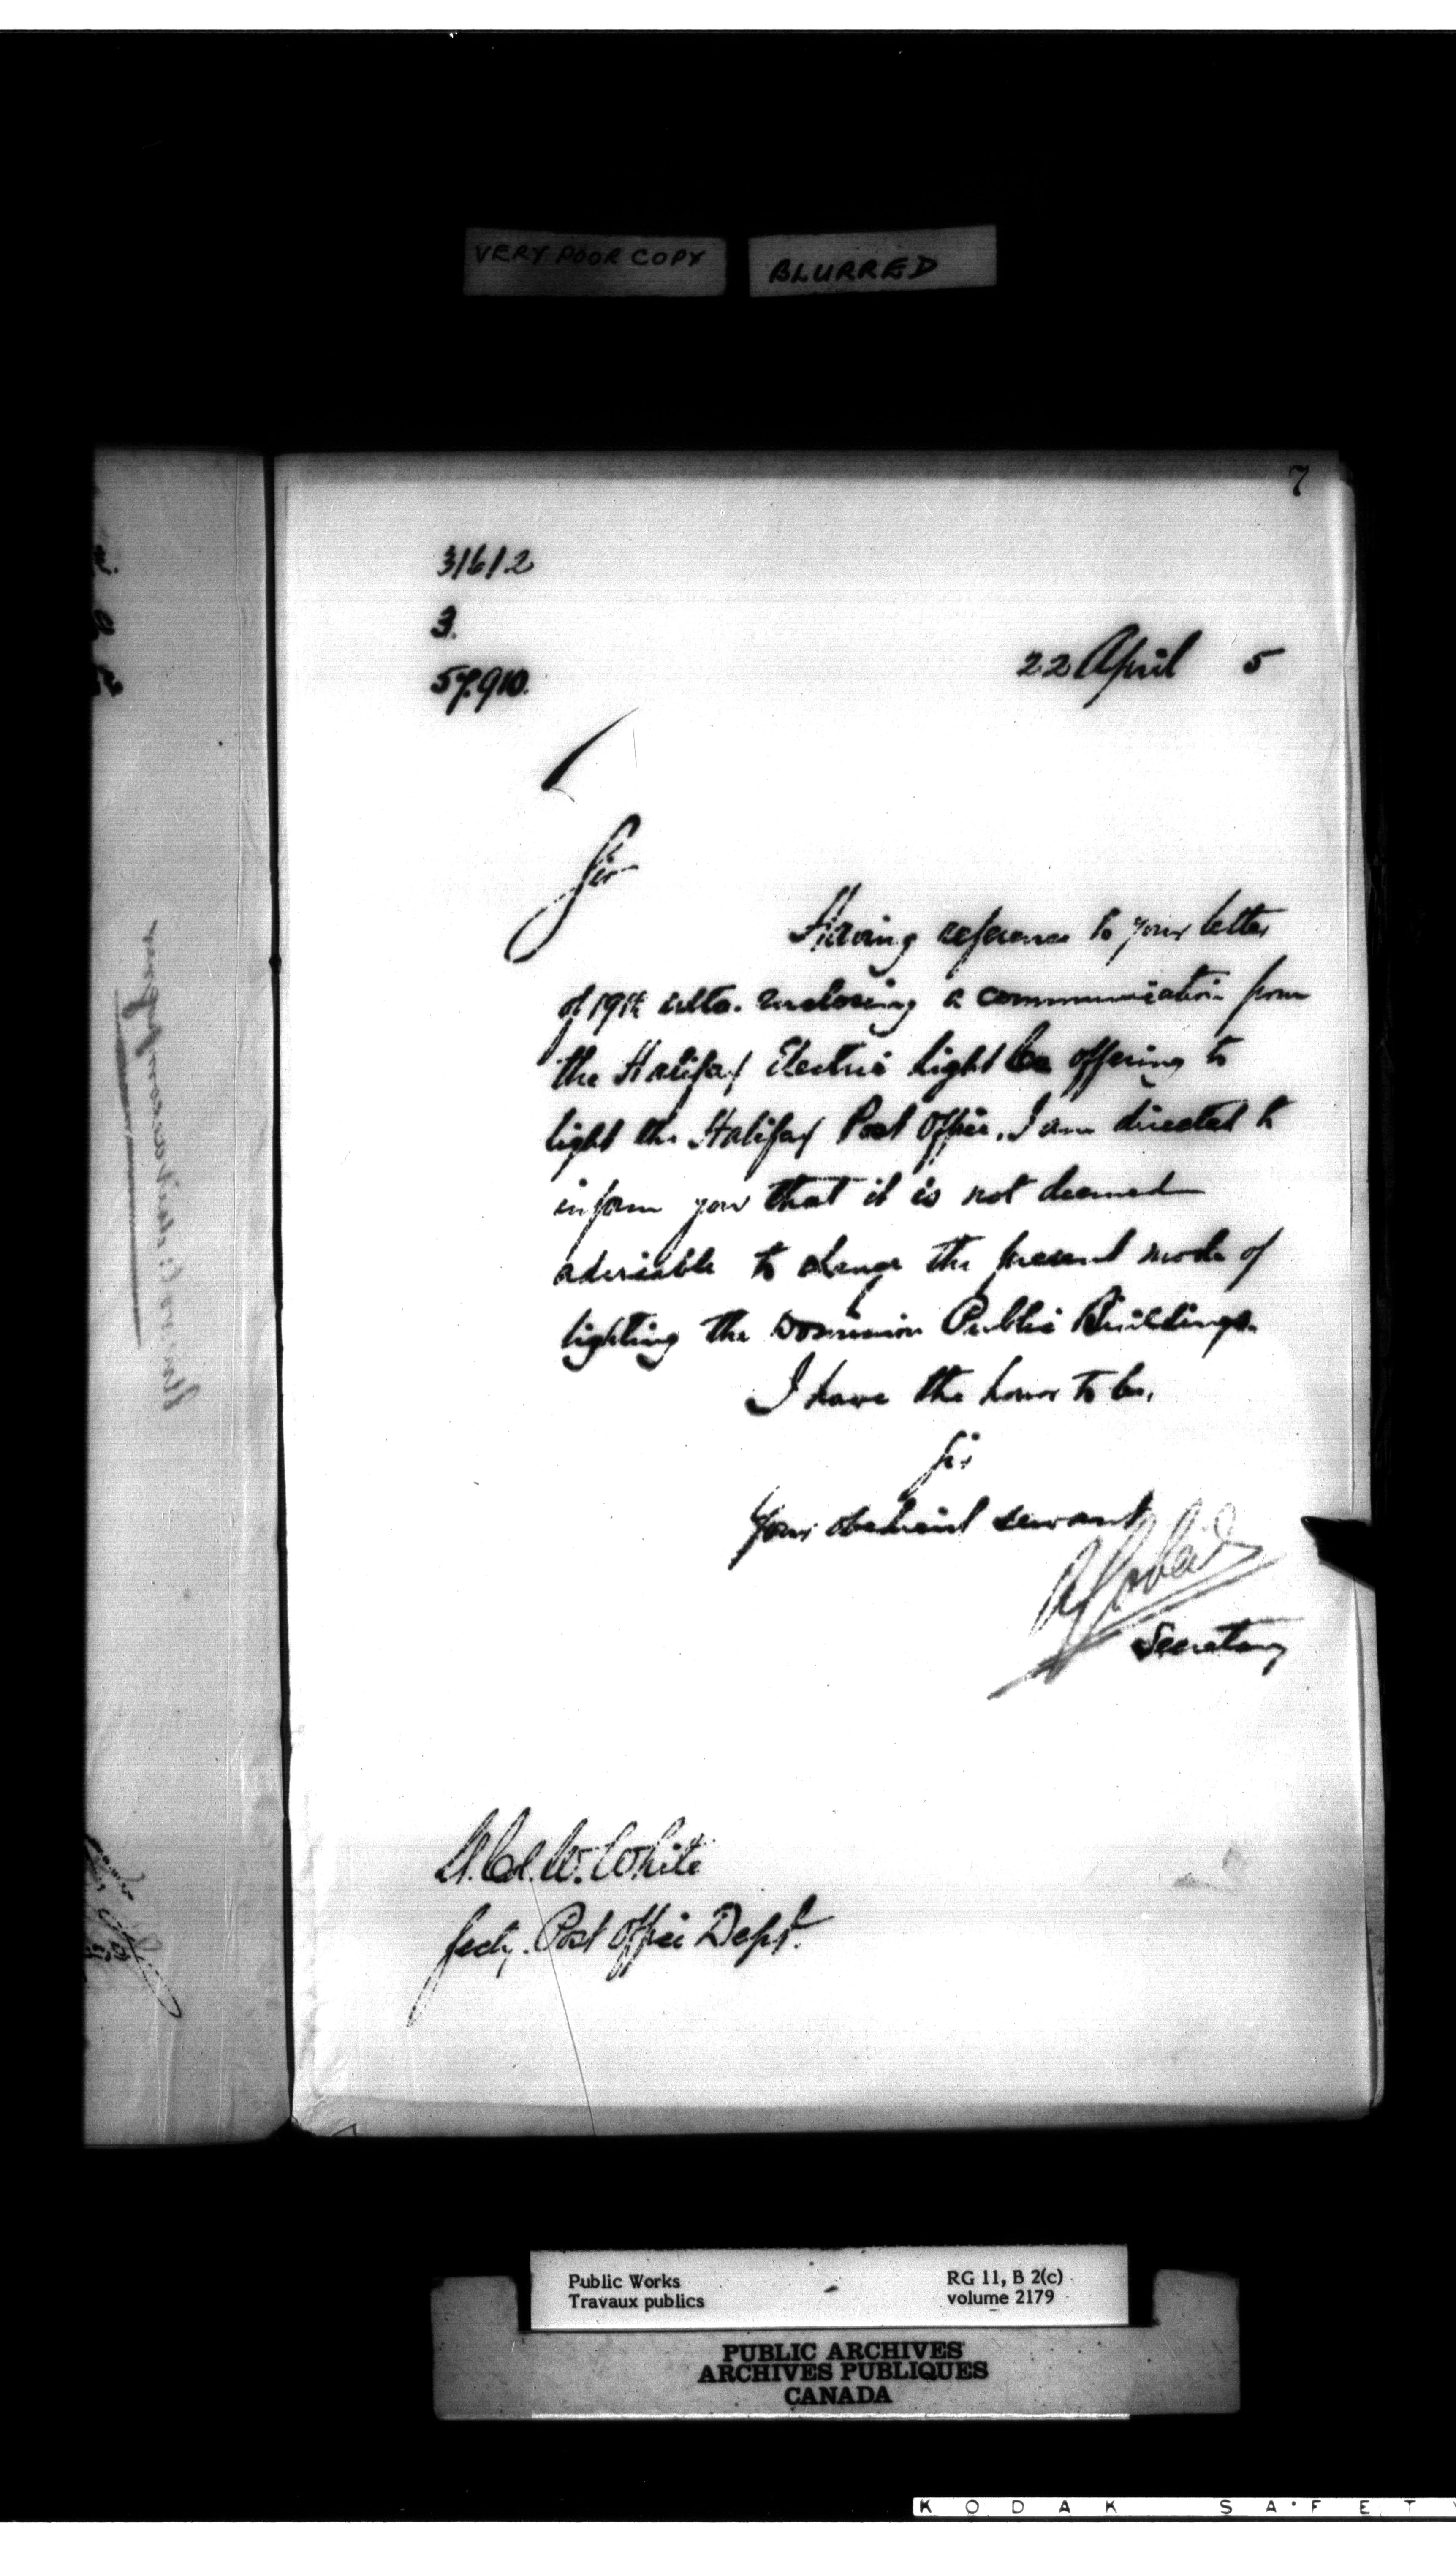 VERY POOR COPY
BLURRED
7
31612
3.
57.910.
22 April 5
Sir
Having reference to your letter
of 19th ulto. enclosing a communication from
the Halifax Electric Light Co offering to
light the Halifax Post Office, I am directed to
inform you that it is not deemed
advisable to change the present mode of
lighting the Dominion Public Buildings.
I have the honor to be,
Sir
Your obedient servant
Secretary
W. White
Secty. Post Office Dept.
Public Works
Travaux publics
RG 11, B 2(c)
volume 2179
PUBLIC ARCHIVES
ARCHIVES PUBLIQUES
CANADA
KODAK SAFETY